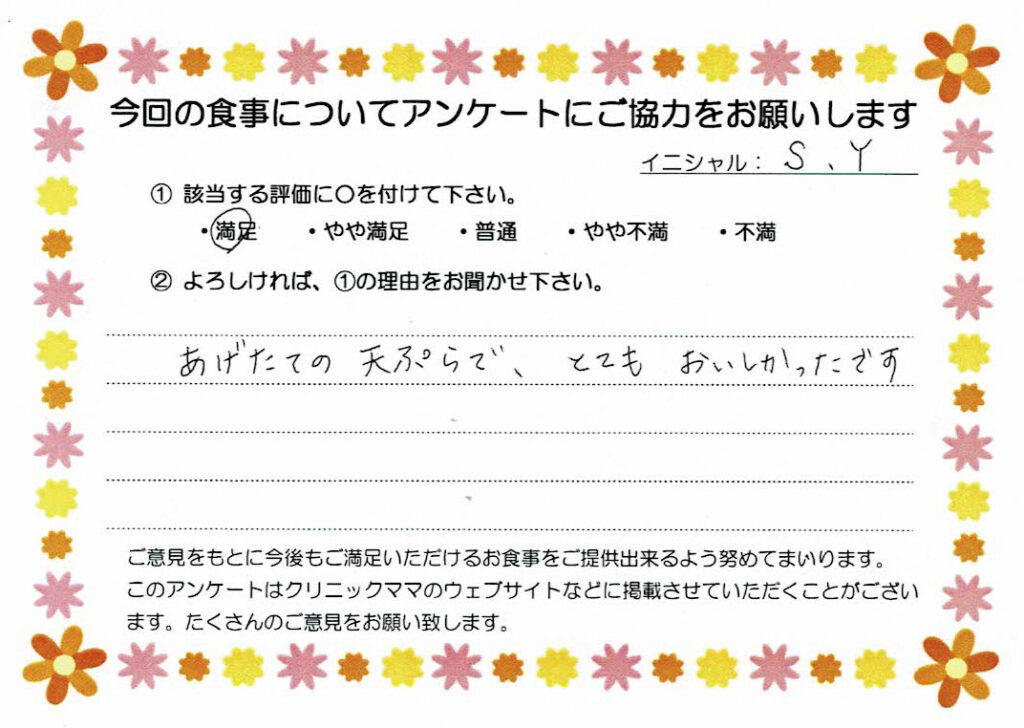 今回の食事についてアンケートにご協力をお願いします
イニシャル： S、Y
① 該当する評価に〇を付けて下さい。
・満足 ・やや満足 ・普通 ・やや不満 ・不満
② よろしければ、①の理由をお聞かせ下さい。
あげたての 天ぷらで、とても おいしかったです
ご意見をもとに今後もご満足いただけるお食事をご提供出来るよう努めてまいります。
このアンケートはクリニックママのウェブサイトなどに掲載させていただくことがござい
ます。たくさんのご意見をお願い致します。